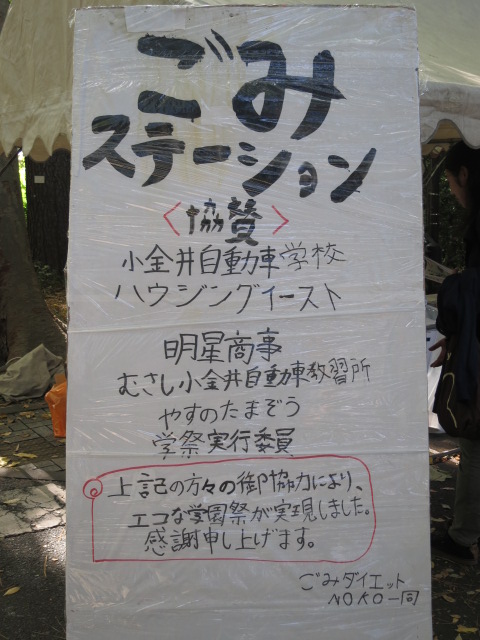 ごみ
ステーション
〈協賛〉
小金井自動車学校
ハウジングイースト
明星商事
むさし小金井自動車教習所
やすのたまぞう
学祭実行委員
上記の方々の御協力により、
エコな学園祭が実現しました。
感謝申し上げます。
ごみダイエット
NOKO一同